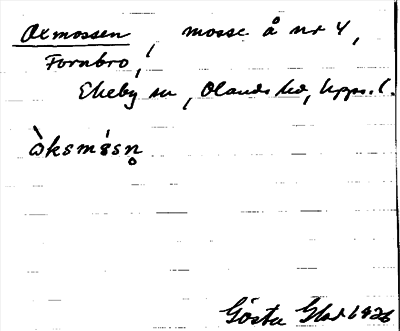 Oxmossen, mosse å nr 4,
Fornbro,
Ekeby sn, Olands hd, Upps. l.
òksmósn̥
Gösta 1926